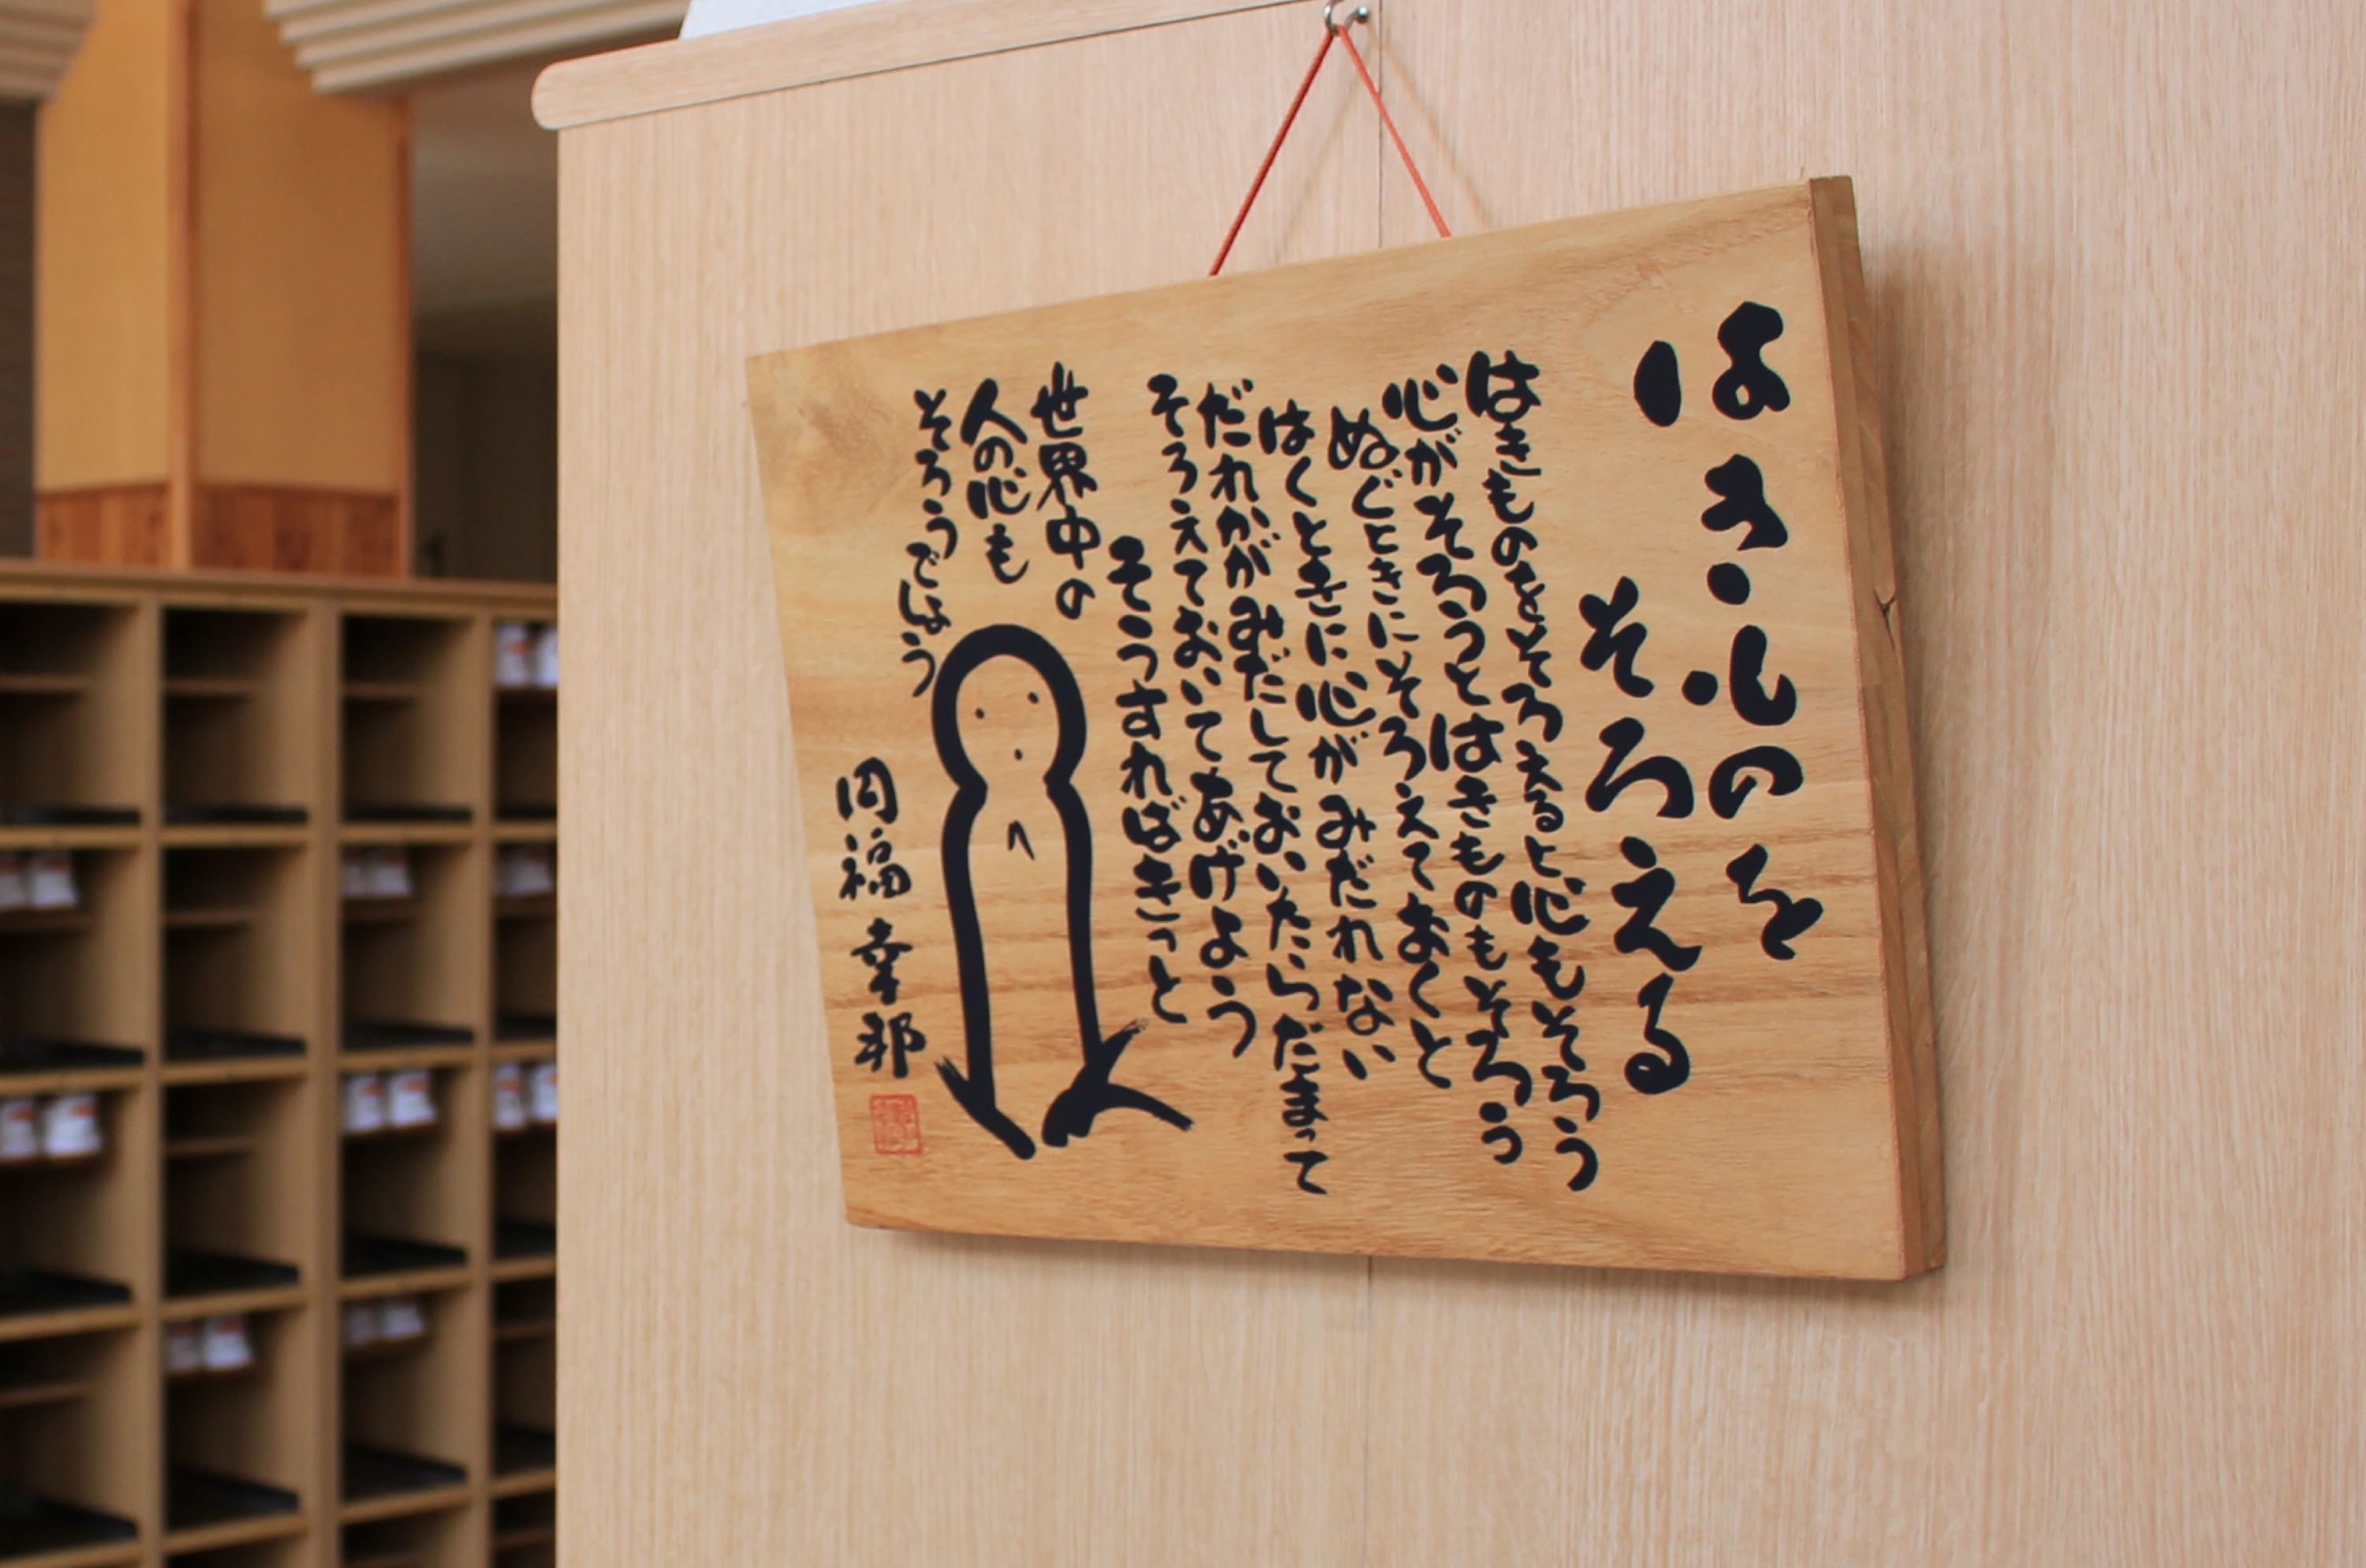 はきものを
そろえる
はきものをそろえると心もそろう
心がそろうとはきものもそろう
ぬぐときにそろえておくと
はくときに心がみだれない
だれかがみだしておいたらだまって
そろえておいてあげよう
そうすればきっと
世界中の
人の心も
そろうでしょう
円福 幸邦